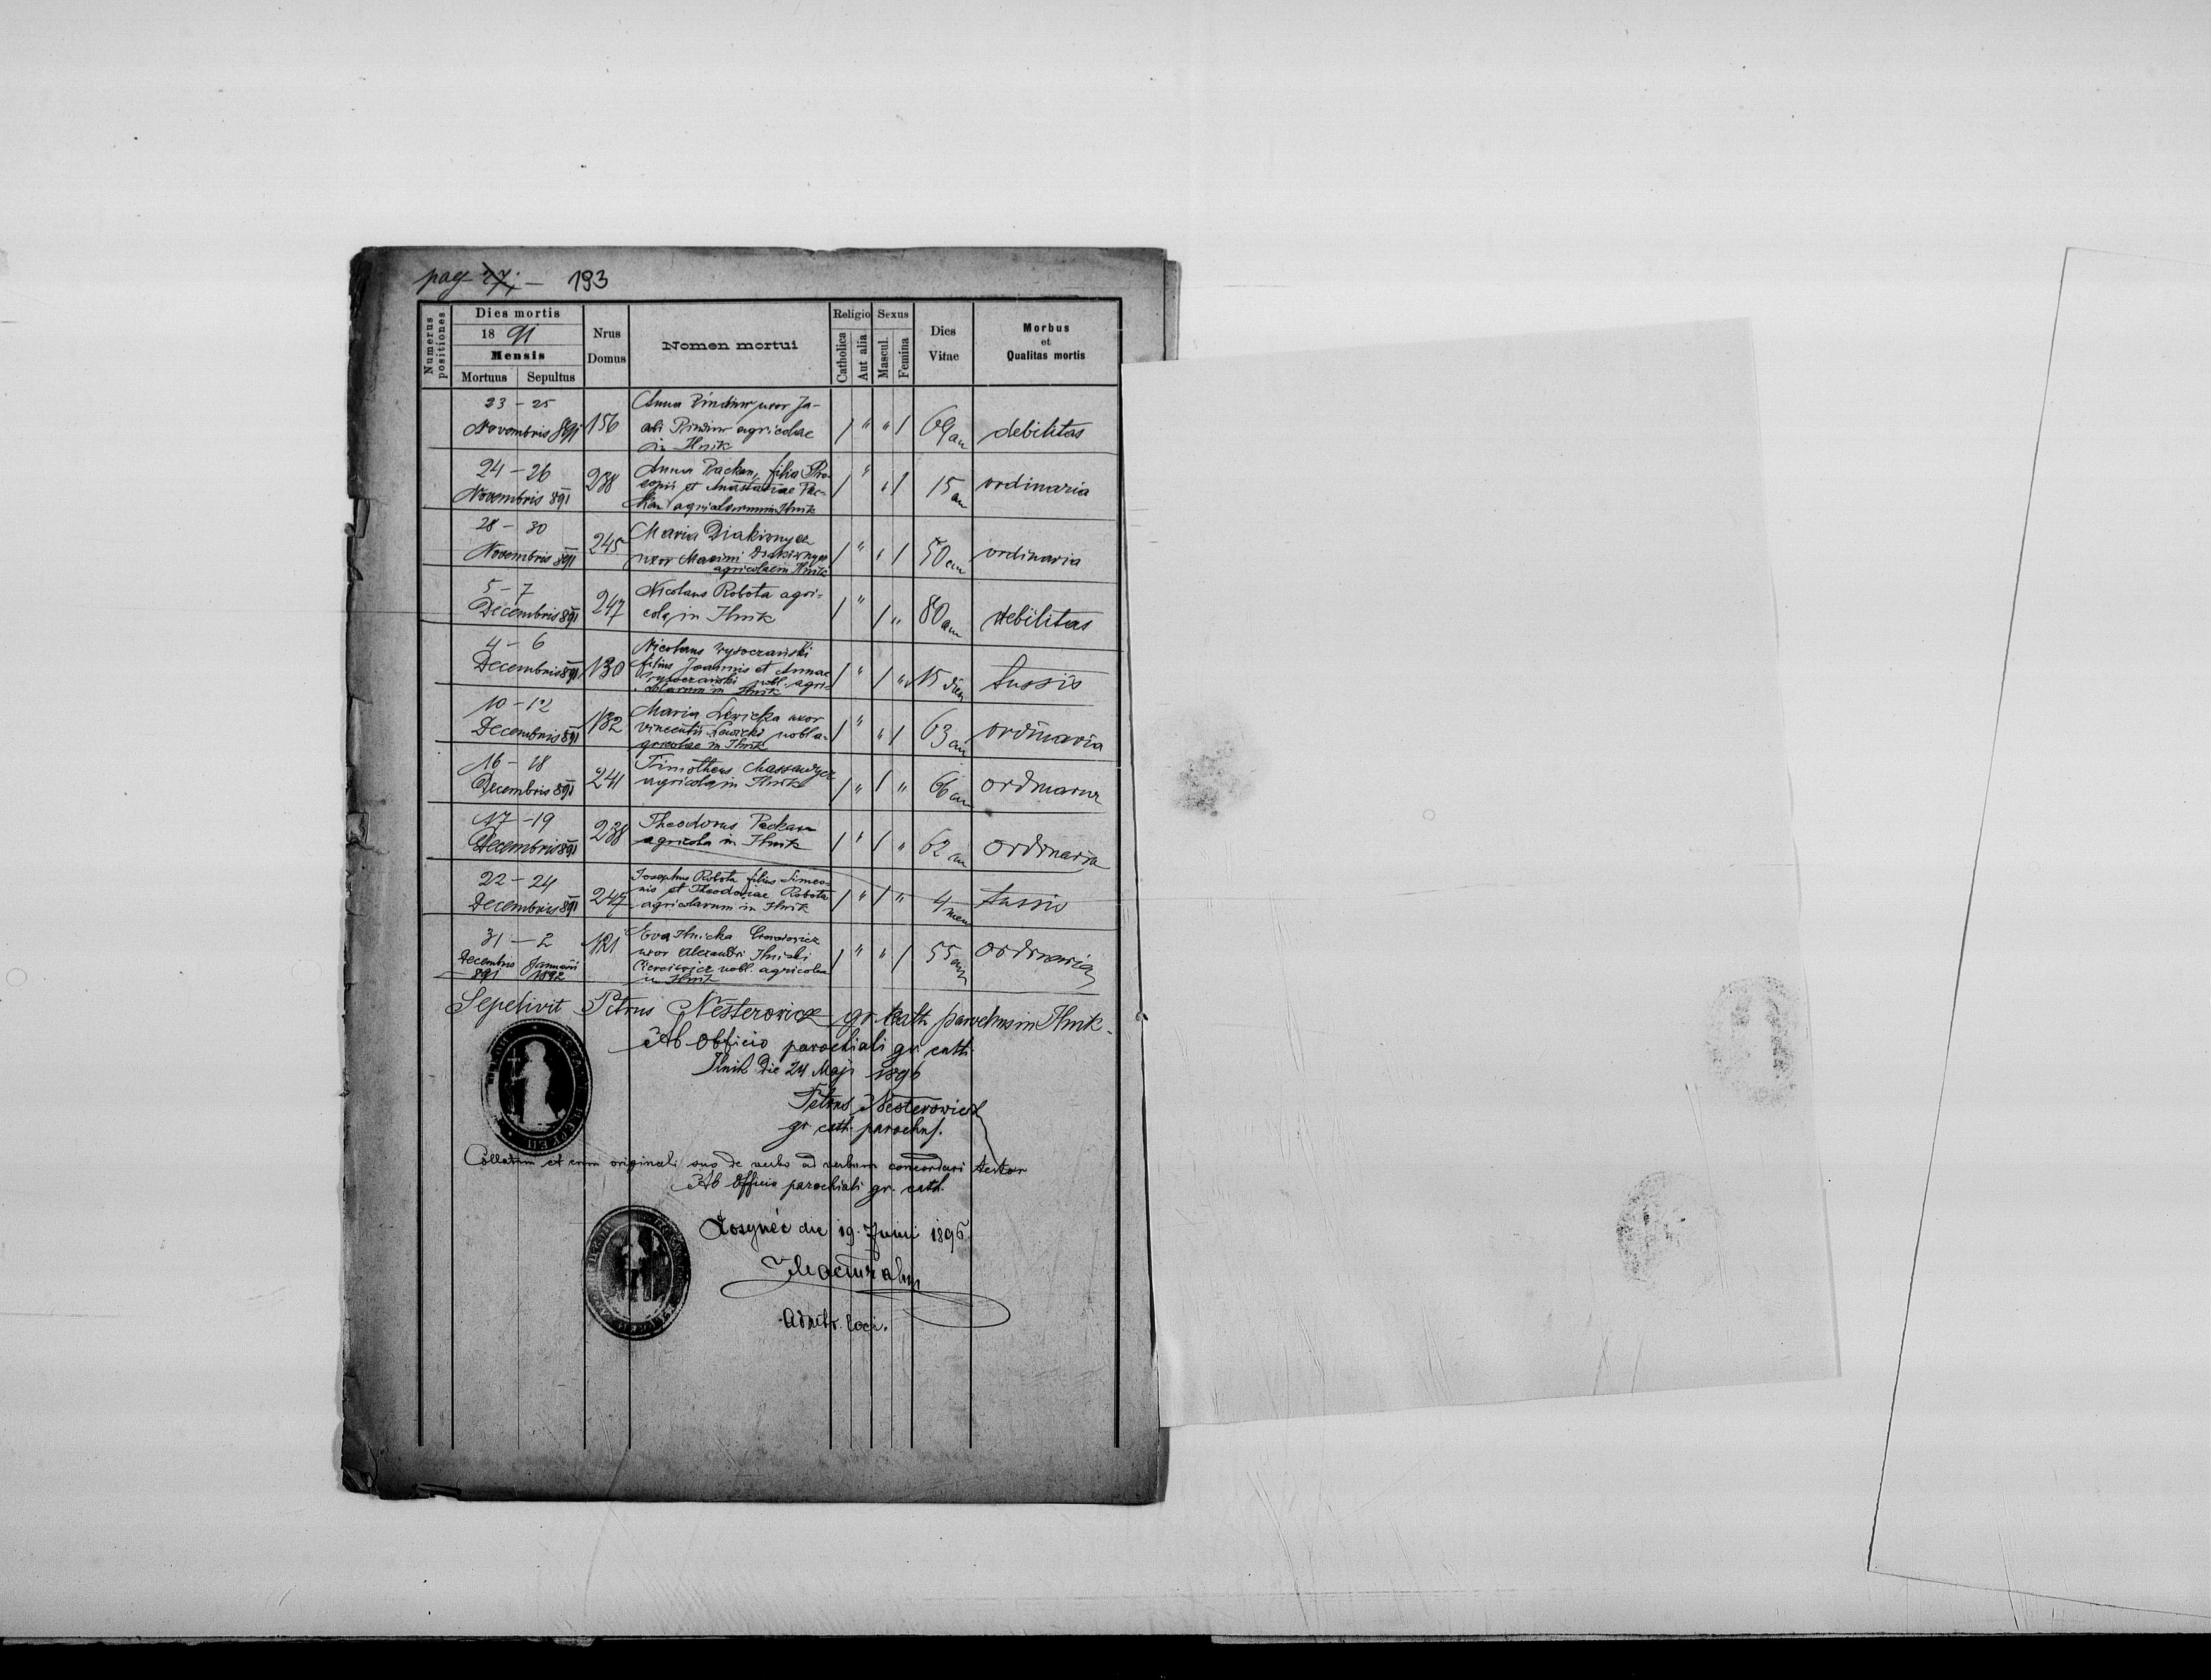 pag 77; — 193
Numerus positiones
Dies mortis
18 91
Mensis
Mortuus Sepultus
Nrus
Domus
Nomen mortui
Religio
Catholica
Aut alia
Sexus
Mascul.
Femina
Dies
Vitae
Morbus
et
Qualitas mortis
23 – 25
Novembris 891
156
Anna uxor Ja-
agricolae
in Ilnik
/ " " /
69 an
debilitas
24 – 26
Novembris 891
238
Anna Packan, filia Pro-
copii et Anastasiae Pac-
kan agricolarum in Ilnik
/ " " /
15 an
ordinaria
28 – 30
Novembris 891
245
Maria Diakiwnycz
uxor Maximi Diakiwnycz
agricolae in Ilnik
/ " " /
50 an
ordinaria
5 – 7
Decembris 891
247
Nicolaus Robota agri-
cola in Ilnik
/ " / "
80 ann
debilitas
4 – 6
Decembris 891
130
Nicolaus Wysoczański
filius Joannis et Annae
Wysoczański nobl. agri-
colarum in Ilnik
/ " / "
15 dies
tussis
10 – 12
Decembris 891
132
Maria Lewicka uxor
Vincentii Lewicki nobl a-
gricolae in Ilnik
/ " " /
63 an
ordinaria
16 – 18
Decembris 891
241
Timotheus
agricola in Ilnik
/ " / "
66 an
ordinaria
17 – 19
Decembris 891
238
Theodorus Packan
agricola in Ilnik
/ " / "
62 an
ordinaria
22 – 24
Decembris 891
247
Josephus Robota filius Simeo-
nis et Theodosiae Robota
agricolarum in Ilnik
/ " / "
4 mens
tussis
31 – 2
Decembris Januarii
891 1892
121
Eva Ilnicka
uxor Alexandri Ilnicki
nobl. agricolae
in Ilnik
/ " " /
55 ann
ordinaria
Sepelivit Petrus Nesterowicz gr. cath. parochus in Ilnik.
Ab officio parochiali gr. cath.
Ilnik die 24 Maji 1896
Petrus Nesterowicz
gr. cath. parochus.
Collatum et cum originali suo de verbo ad verbum concordari testor
Ab officio parochiali gr. cath.
die 19. Junii 1896.
Admtr. loci.